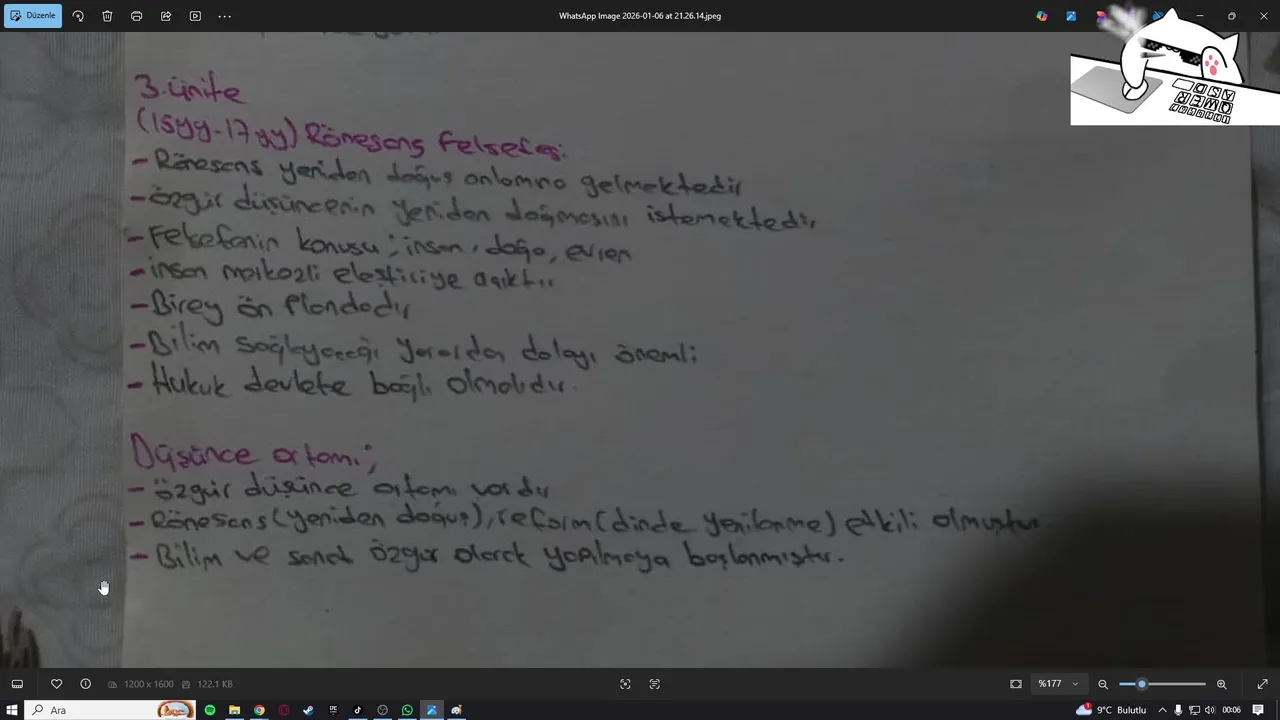 Düzenle
WhatsApp Image 2026-01-06 at 21.26.14.jpeg
3.ünite
(15yy-17yy) Rönesans Felsefesi:
- Rönesans yeniden doğuş anlamına gelmektedir
- özgür düşüncenin yeniden doğmasını istemektedir
- Felsefenin konusu; insan, doğa, evren
- insan merkezli eleştiriye açıktır
- Birey ön plandadır
- Bilim sağlayacağı yarardan dolayı önemli
- Hukuk devlete bağlı olmalıdır.
Düşünce ortamı;
- özgür düşünce ortamı vardır
- Rönesans(yeniden doğuş), reform(dinde yenilenme) etkili olmuştur
- Bilim ve sanat özgür olarak yapılmaya başlanmıştır.
1200 x 1600 122.1 KB
%177
Ara
9°C Bulutlu
00:06